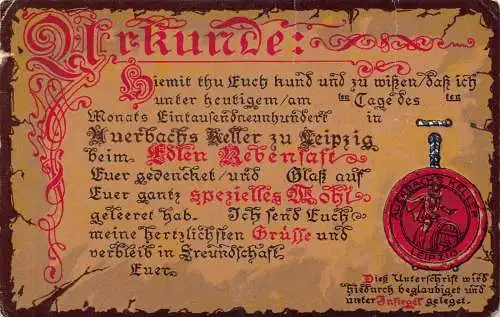 Urkunde:
Hiemit thu Euch kund und zu wißen/daß ich
unter heutigem/am ten Tage des ten
Monats Eintausendneunhundert in
Auerbachs Keller zu Leipzig
beim Edlen Rebensaft
Euer gedencket/und Glaß auf
Euer gantz spezielles Wohl
geleeret hab. Ich send Euch
meine hertzlichsten Grüße und
verbleib in Freundschaft
Euer
AUERBACHS KELLER
LEIPZIG
Dieß Unterschrift wird
hiedurch beglaubiget und
unter Insiegel geleget.